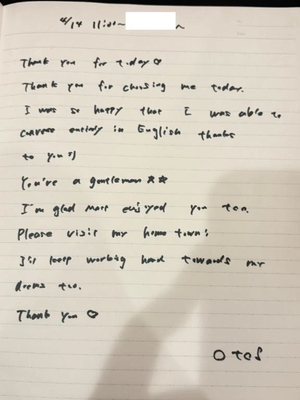 4/14 11:00~ ~
Thank you for today♡
Thank you for choosing me today.
I was so happy that I was able to
converse entirely in English thanks
to you :)
You're a gentleman ☆☆
I'm glad most enjoyed you too.
Please visit my home town!
I'll keep working hard towards my
dreams too.
Thank you ♡